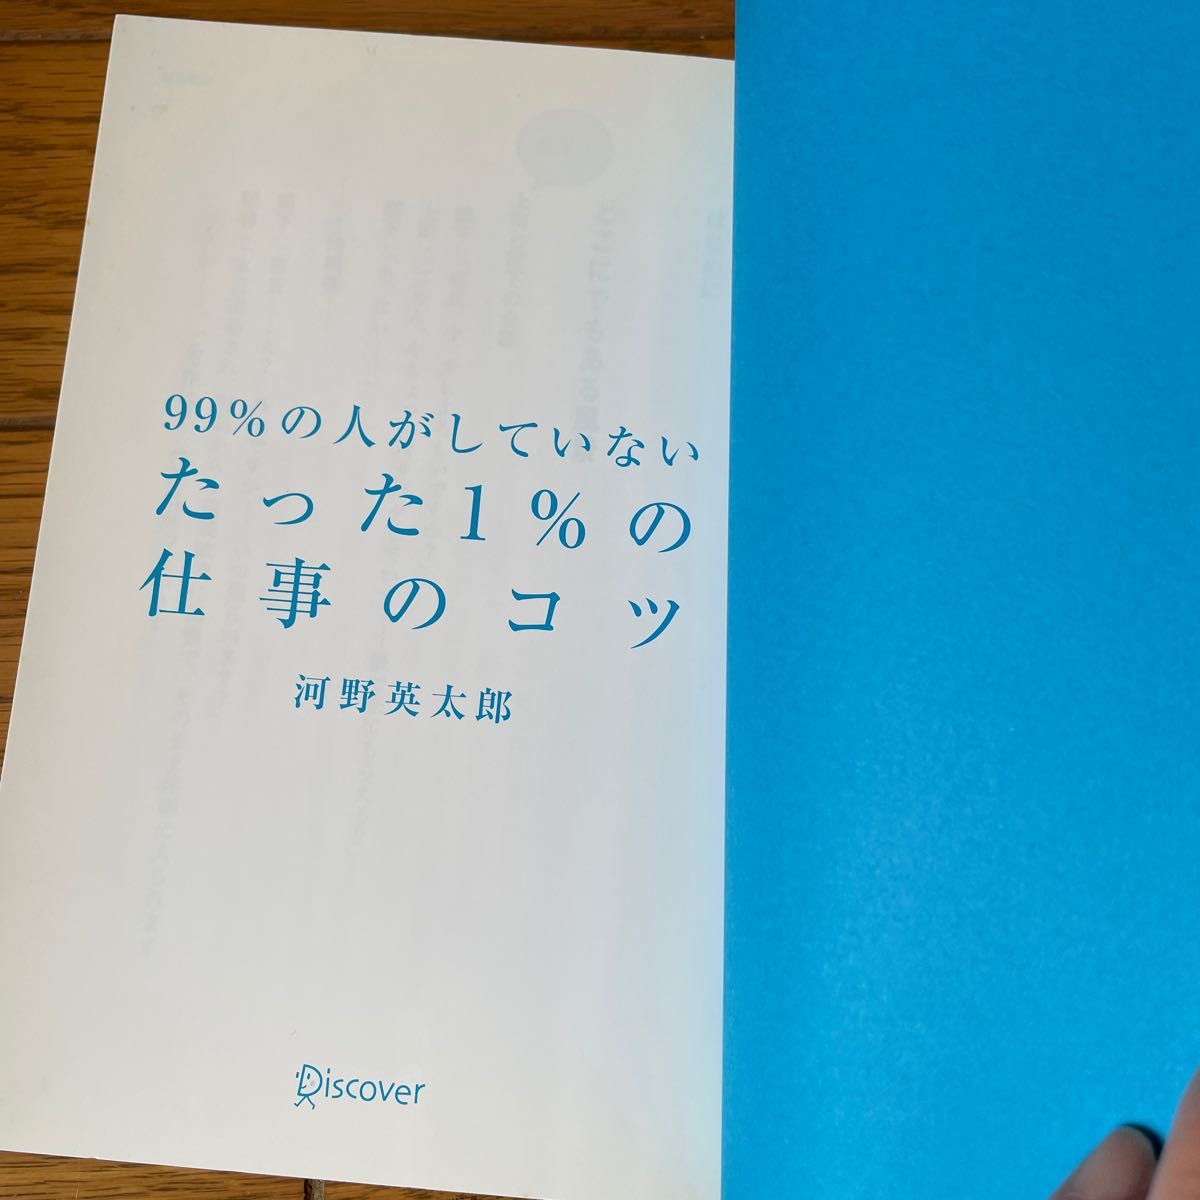 99%の人がしていない
たった1%の
仕事のコツ
河野英太郎
Discover